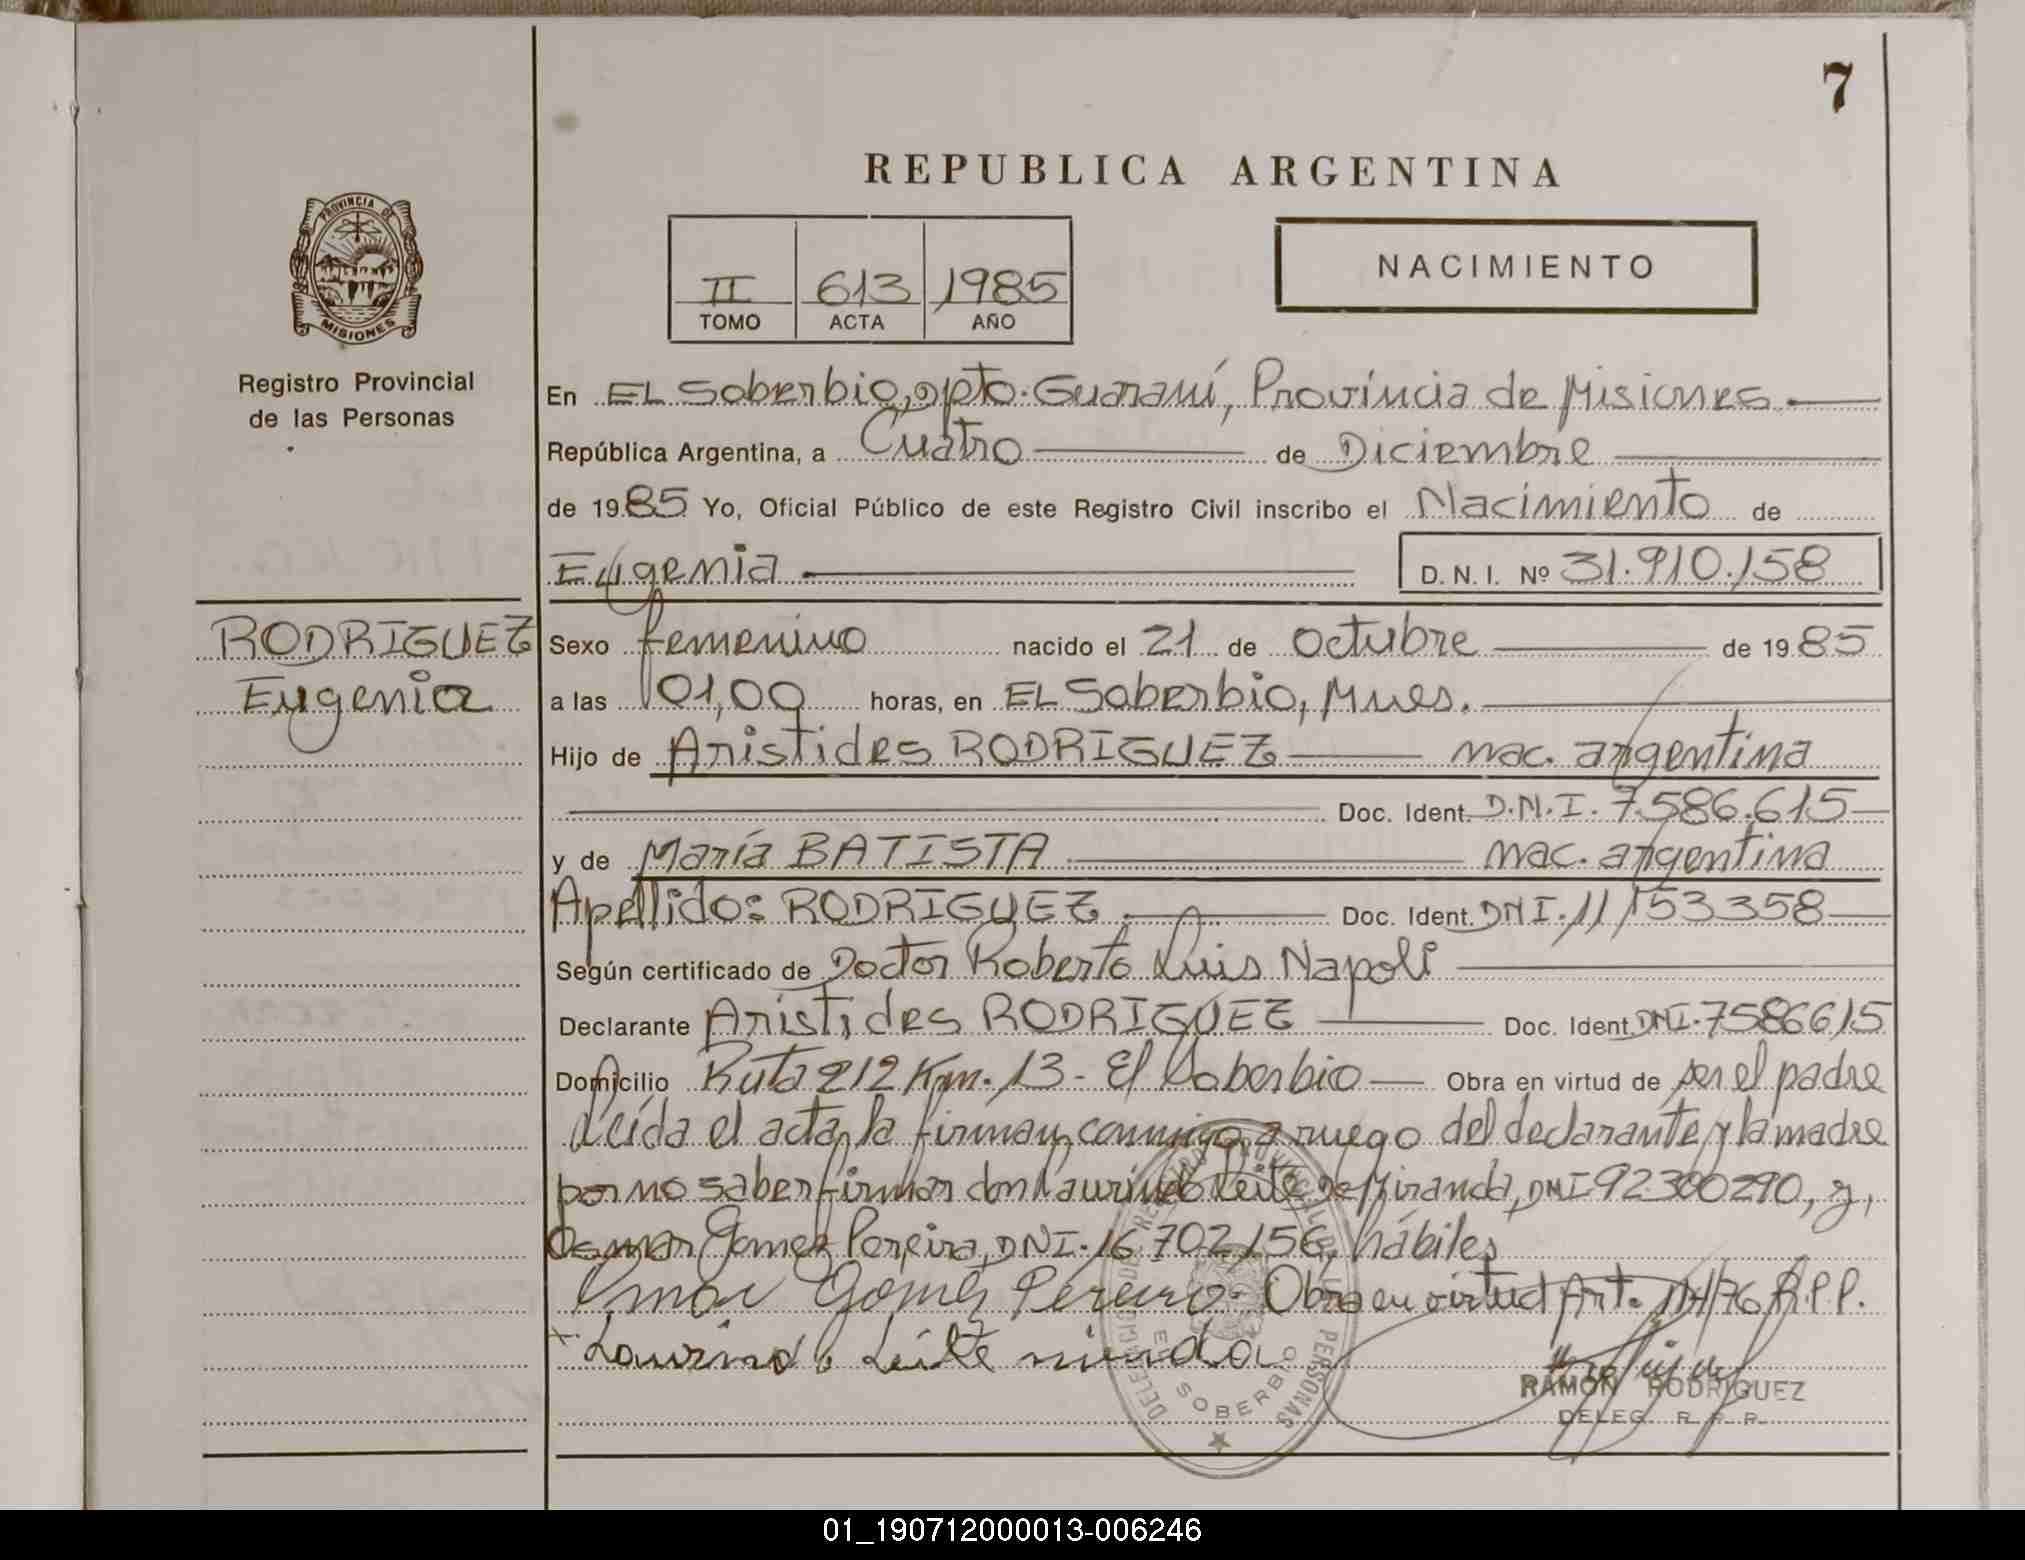 7
REPUBLICA ARGENTINA
PROVINCIA DE
MISIONES
Registro Provincial
de las Personas
II 613 1985
TOMO ACTA AÑO
NACIMIENTO
En EL Soberbio, Dpto. Guaraní, Provincia de Misiones
República Argentina, a Cuatro de Diciembre
de 1985 Yo, Oficial Público de este Registro Civil inscribo el Nacimiento de
Eugenia D. N. I. Nº 31.910.158
RODRIGUEZ
Eugenia
Sexo femenino nacido el 21 de Octubre de 1985
a las 01,00 horas, en EL Soberbio, Mnes.
Hijo de Aristides RODRIGUEZ nac. argentina
Doc. Ident. D.N.I. 7.586.615
y de María BATISTA nac. argentina
Apellido: RODRIGUEZ Doc. Ident. DNI. 11153358
Según certificado de Doctor Roberto Luis Napoli
Declarante Aristides RODRIGUEZ Doc. Ident. DNI. 7586615
Domicilio Ruta 212 Km. 13 - El Soberbio Obra en virtud de ser el padre
Leída el acta, la firman conmigo a ruego del declarante y la madre
por no saber firmar don Laurindo Leite de Miranda, DNI 92300290, y,
Osmar Gomez Pereira, DNI. 16.702156, hábiles
Osmar Gomes Pereira Obra en virtud Art. R.P.P.
Laurindo Leite
DELEGACION DE REGISTRO PROVINCIAL DE LAS PERSONAS
EL SOBERBIO
RAMON RODRIGUEZ
DELEG. R. P. P.
01_190712000013-006246